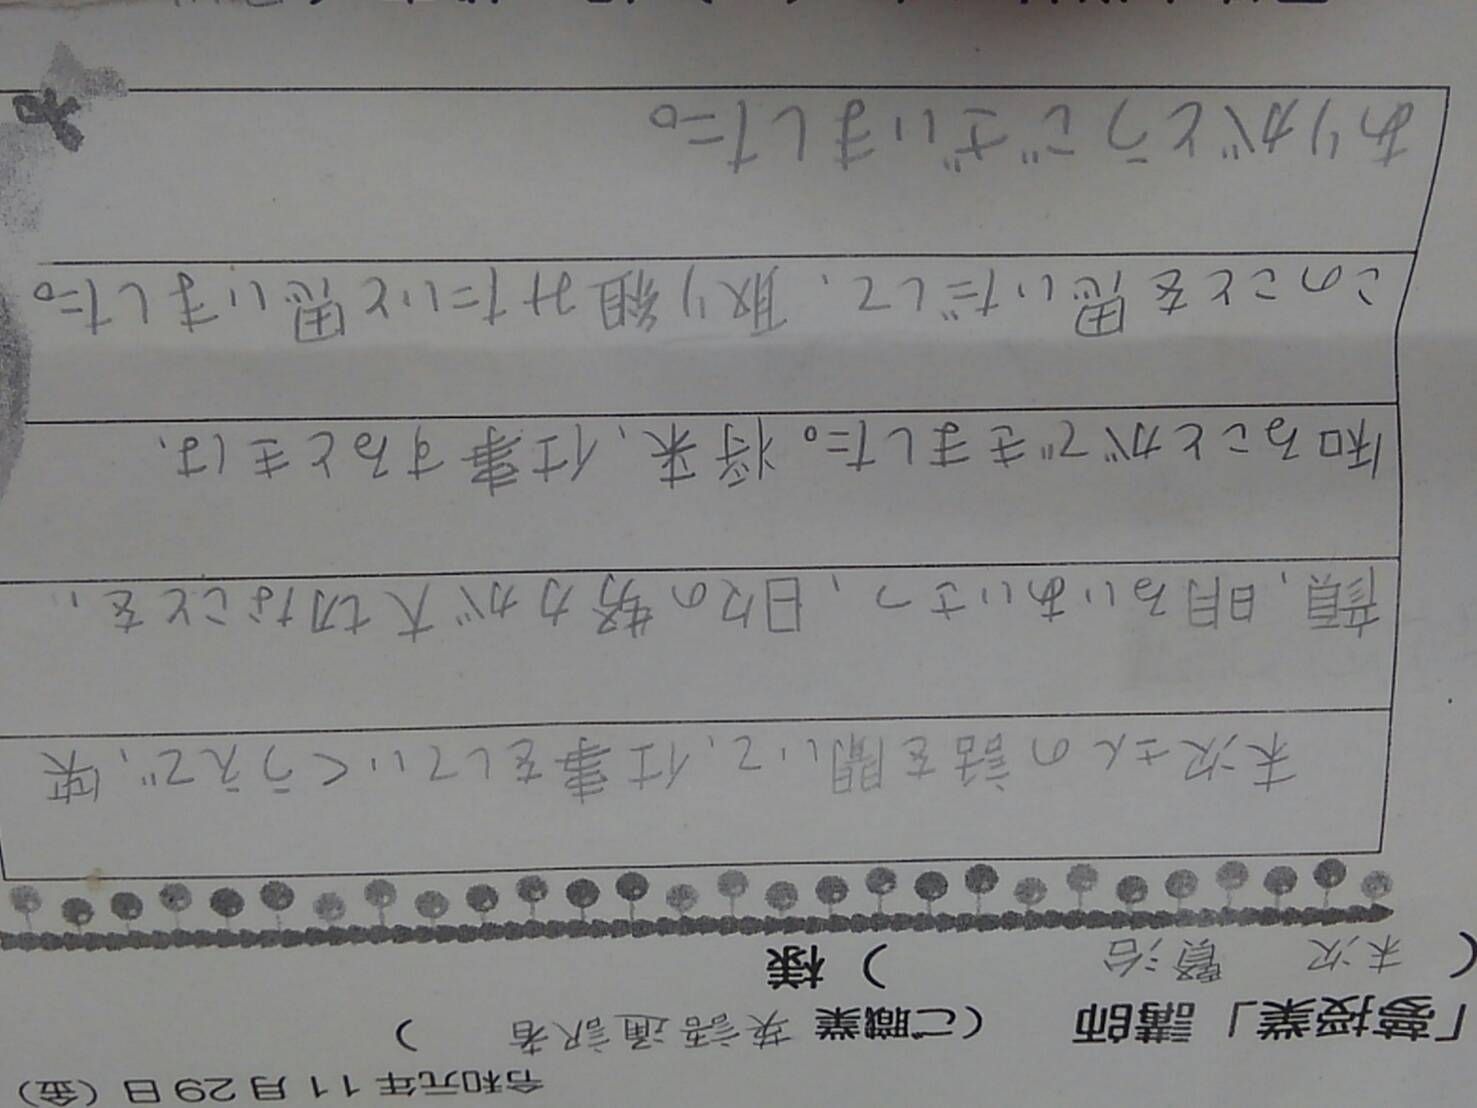 令和元年11月29日(金)
「夢授業」講師 (ご職業 英語通訳者 )
( 末次 賢治 ) 様
末次さんの話を聞いて、仕事をしていくうえで、笑
顔、明るいあいさつ、日々の努力が大切なことを、
知ることができました。将来、仕事するときは、
このことを思いだして、取り組みたいと思いました。
ありがとうございました。